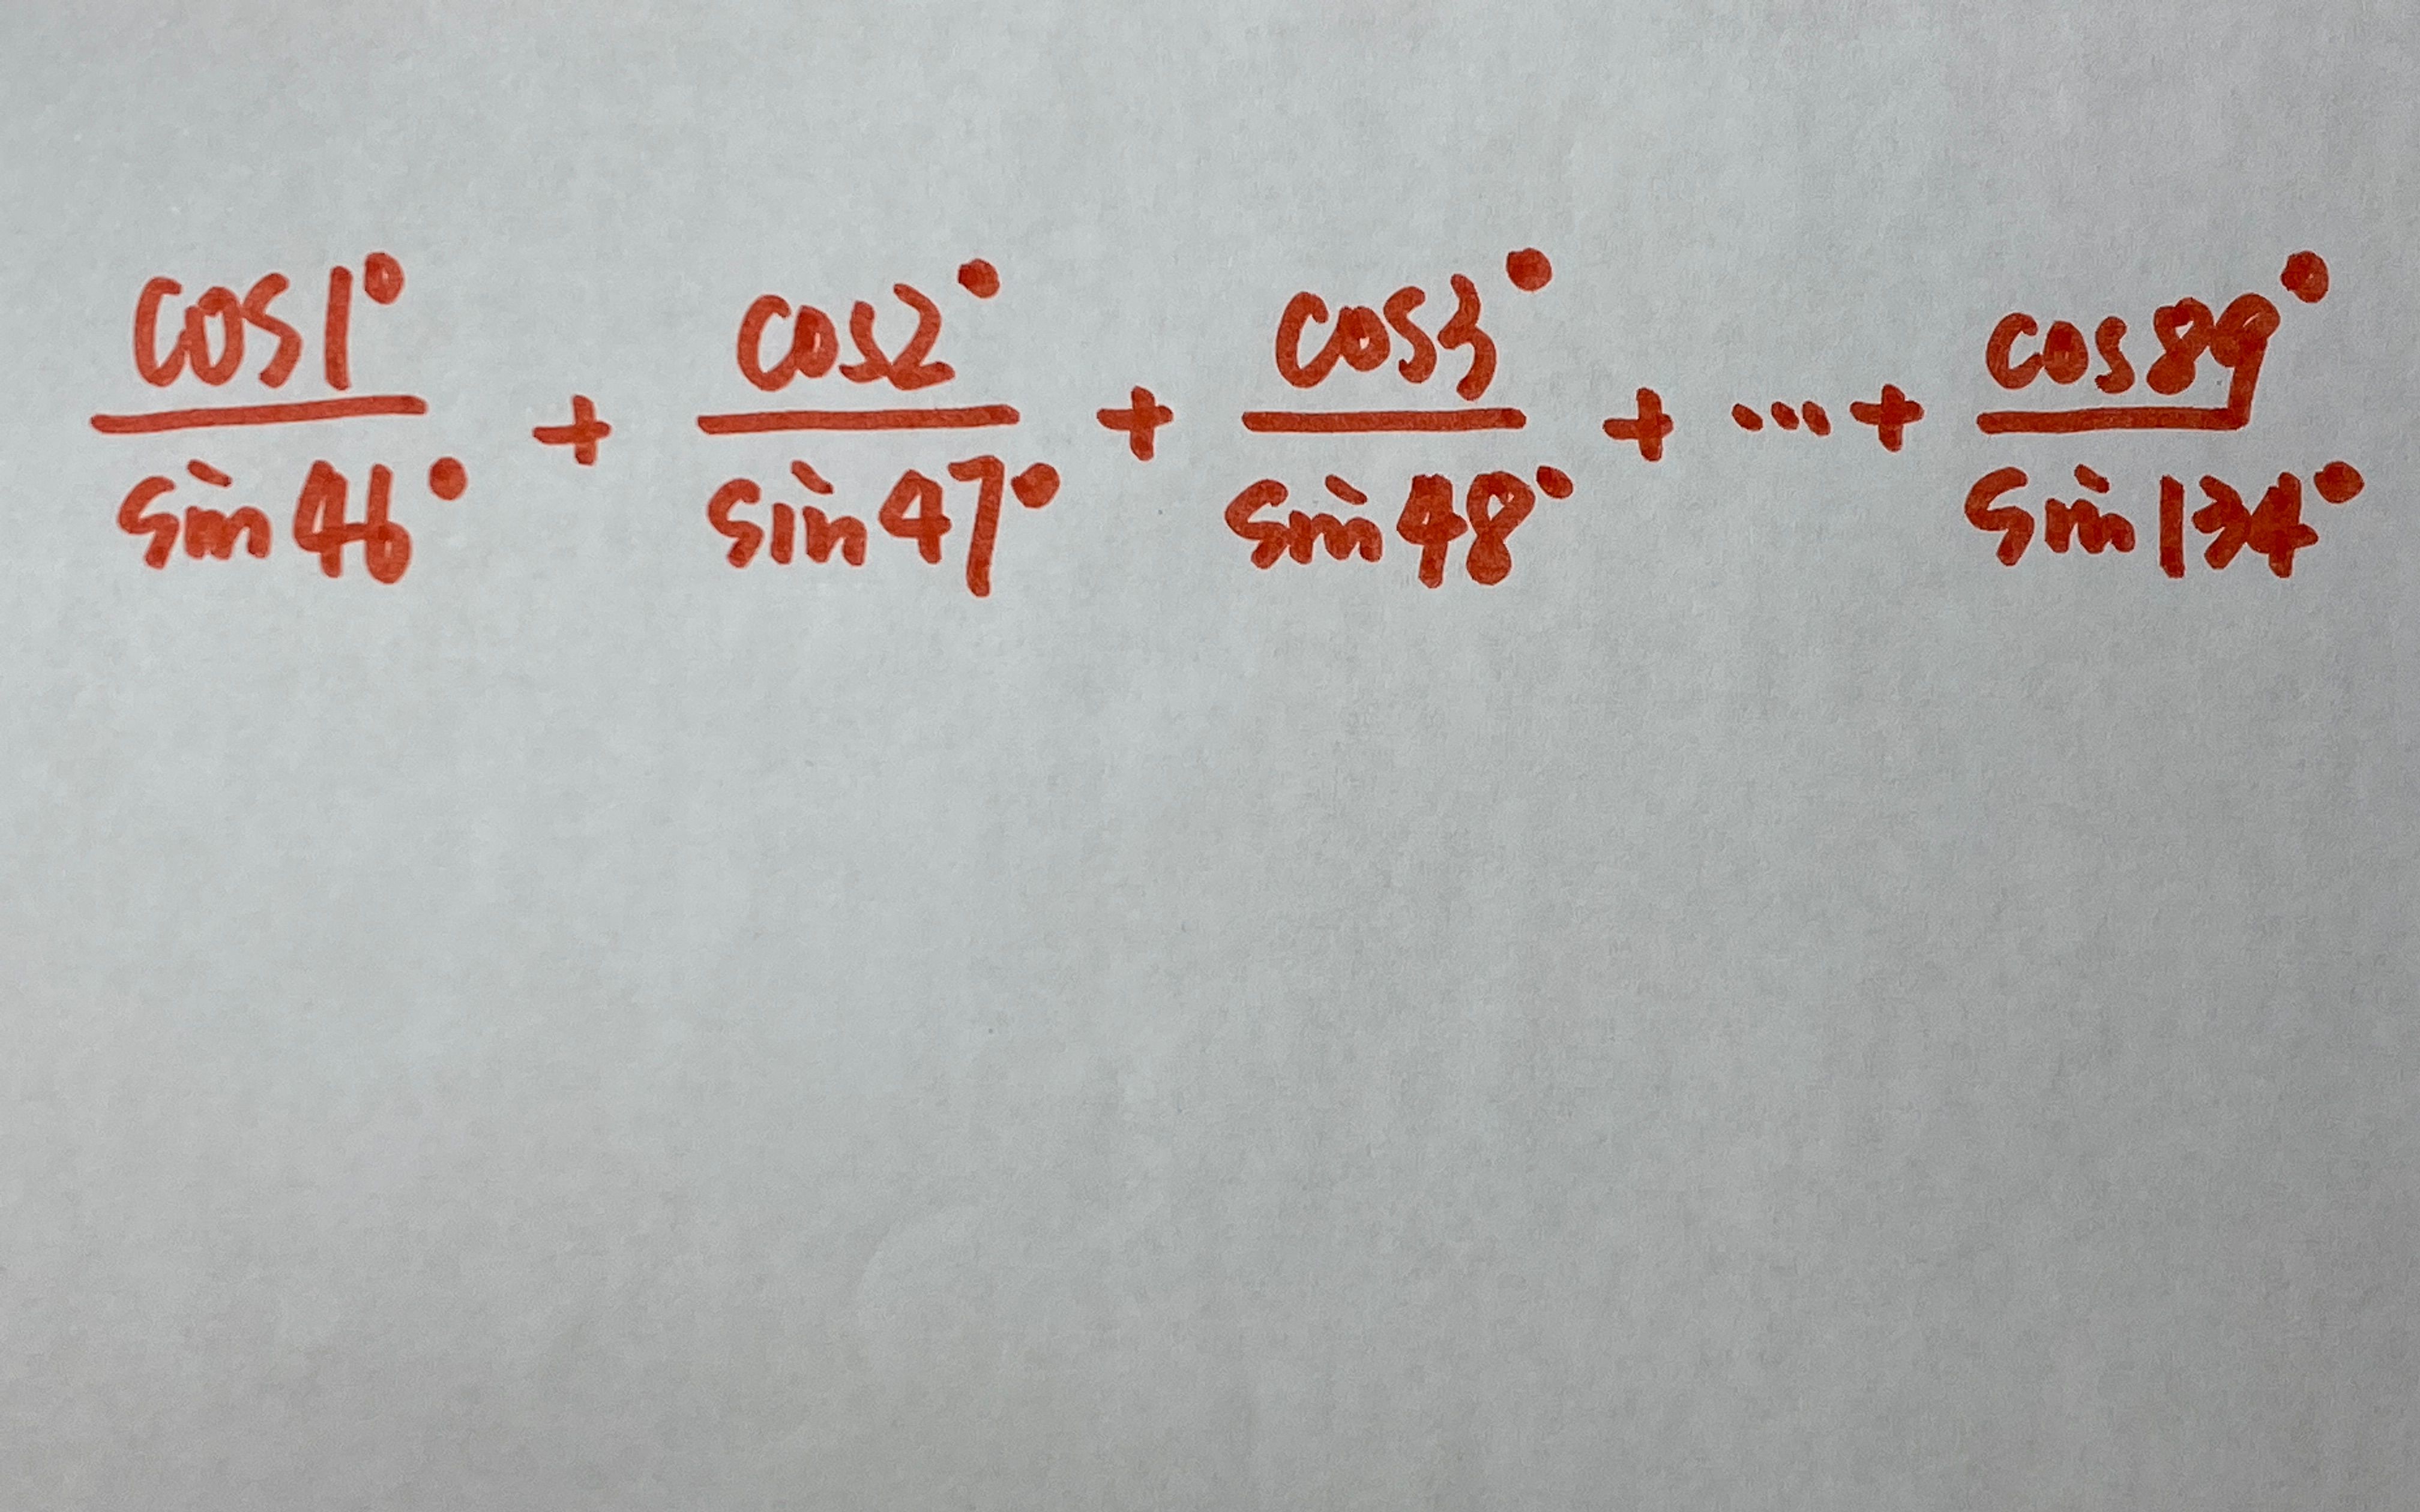 cos1°/sin46° + cos2°/sin47° + cos3°/sin48° + ... + cos89°/sin134°